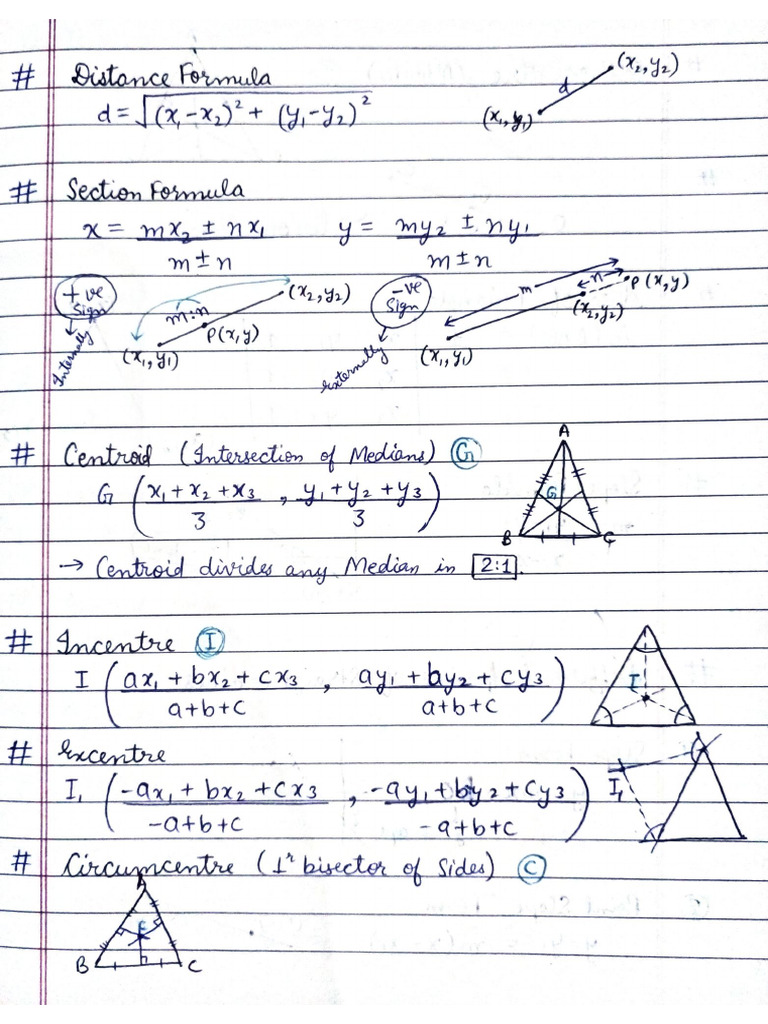 # Distance Formula
d = √(x₁-x₂)² + (y₁-y₂)²
(x₂,y₂)
d
(x₁,y₁)
# Section Formula
x = mx₂ ± nx₁ / m ± n    y = my₂ ± ny₁ / m ± n
+ve Sign
Internally
m:n
(x₂,y₂)
P(x,y)
(x₁,y₁)
-ve Sign
externally
m
n
P(x,y)
(x₂,y₂)
(x₁,y₁)
# Centroid (Intersection of Medians) G
G ( x₁+x₂+x₃ / 3 , y₁+y₂+y₃ / 3 )
A
G
B
C
→ Centroid divides any Median in 2:1.
# Incentre I
I ( ax₁+bx₂+cx₃ / a+b+c , ay₁+by₂+cy₃ / a+b+c )
I
# Excentre
I₁ ( -ax₁+bx₂+cx₃ / -a+b+c , -ay₁+by₂+cy₃ / -a+b+c )
I₁
# Circumcentre (⊥ʳ bisector of Sides) C
A
C
B
C